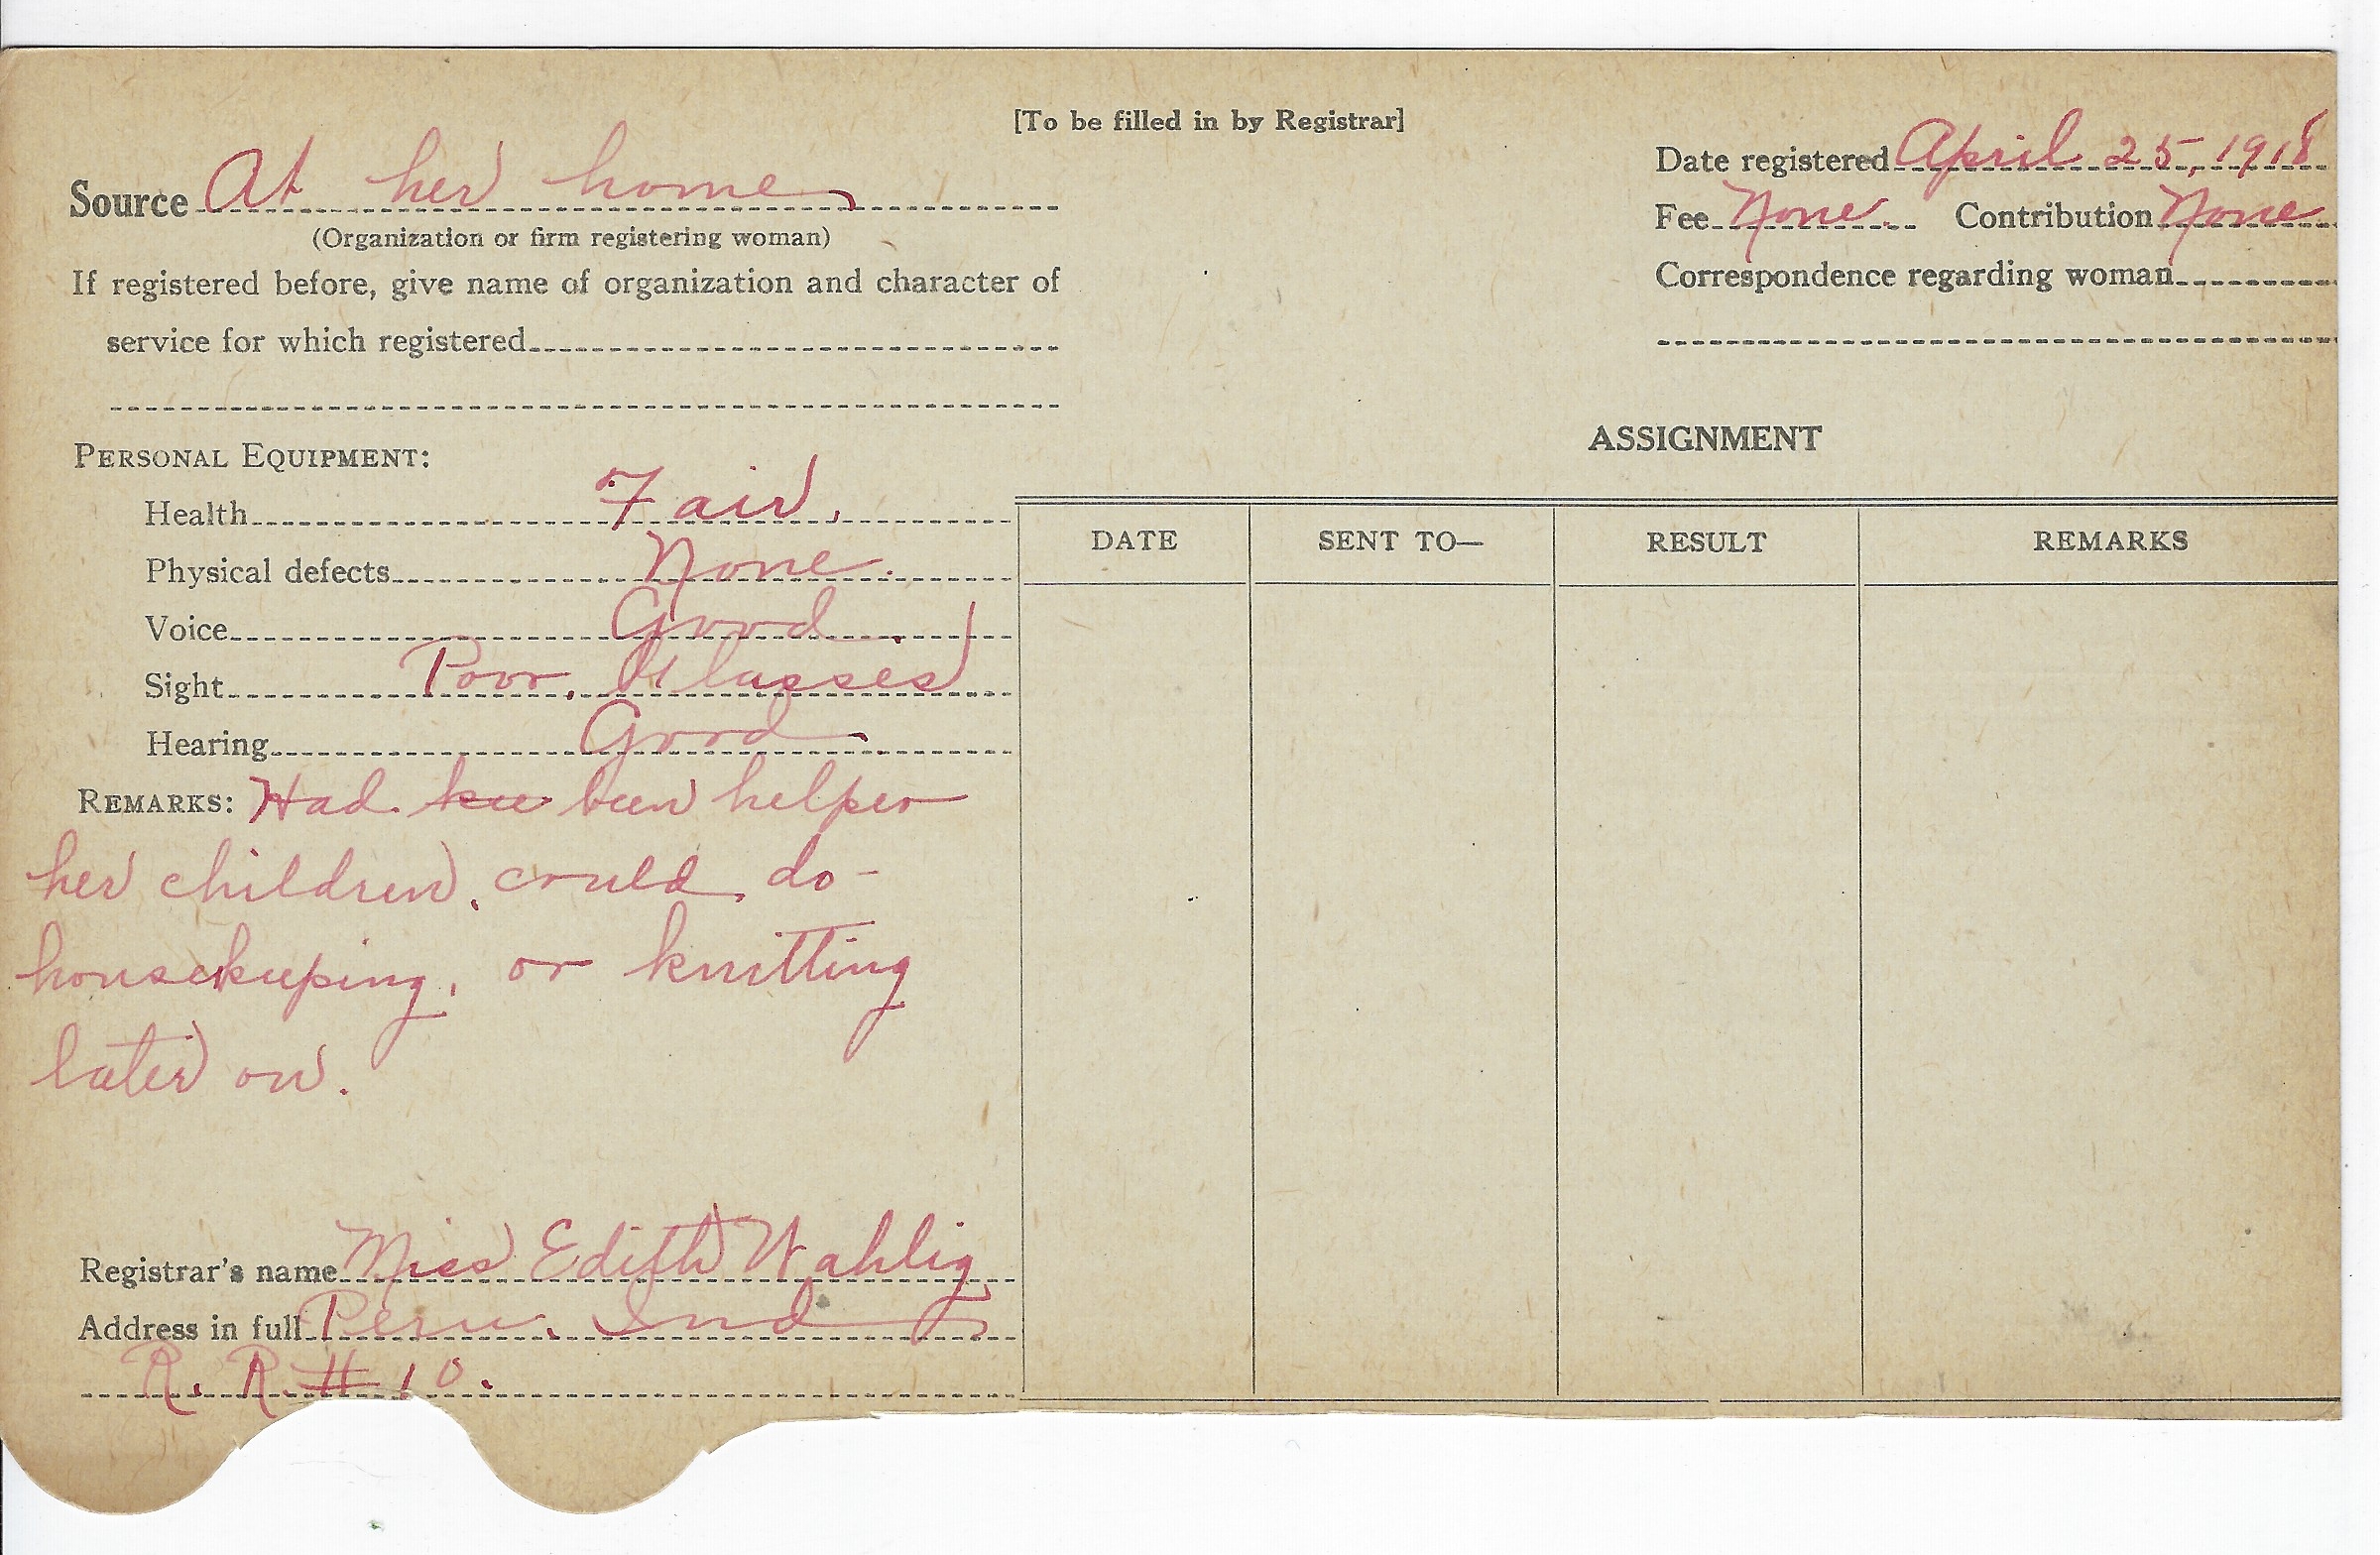 [To be filled in by Registrar]
Source At her home.
(Organization or firm registering woman)
If registered before, give name of organization and character of
service for which registered
Date registered April 25, 1918
Fee None. Contribution None
Correspondence regarding woman
PERSONAL EQUIPMENT:
Health Fair.
Physical defects None.
Voice Good.
Sight Poor. Glasses
Hearing Good.
REMARKS: Had been helper
her children. could do-
housekeeping, or knitting
later on.
Registrar's name Miss Edith Wahlig
Address in full Peru. Ind
R. R. # 10.
ASSIGNMENT
DATE SENT TO— RESULT REMARKS